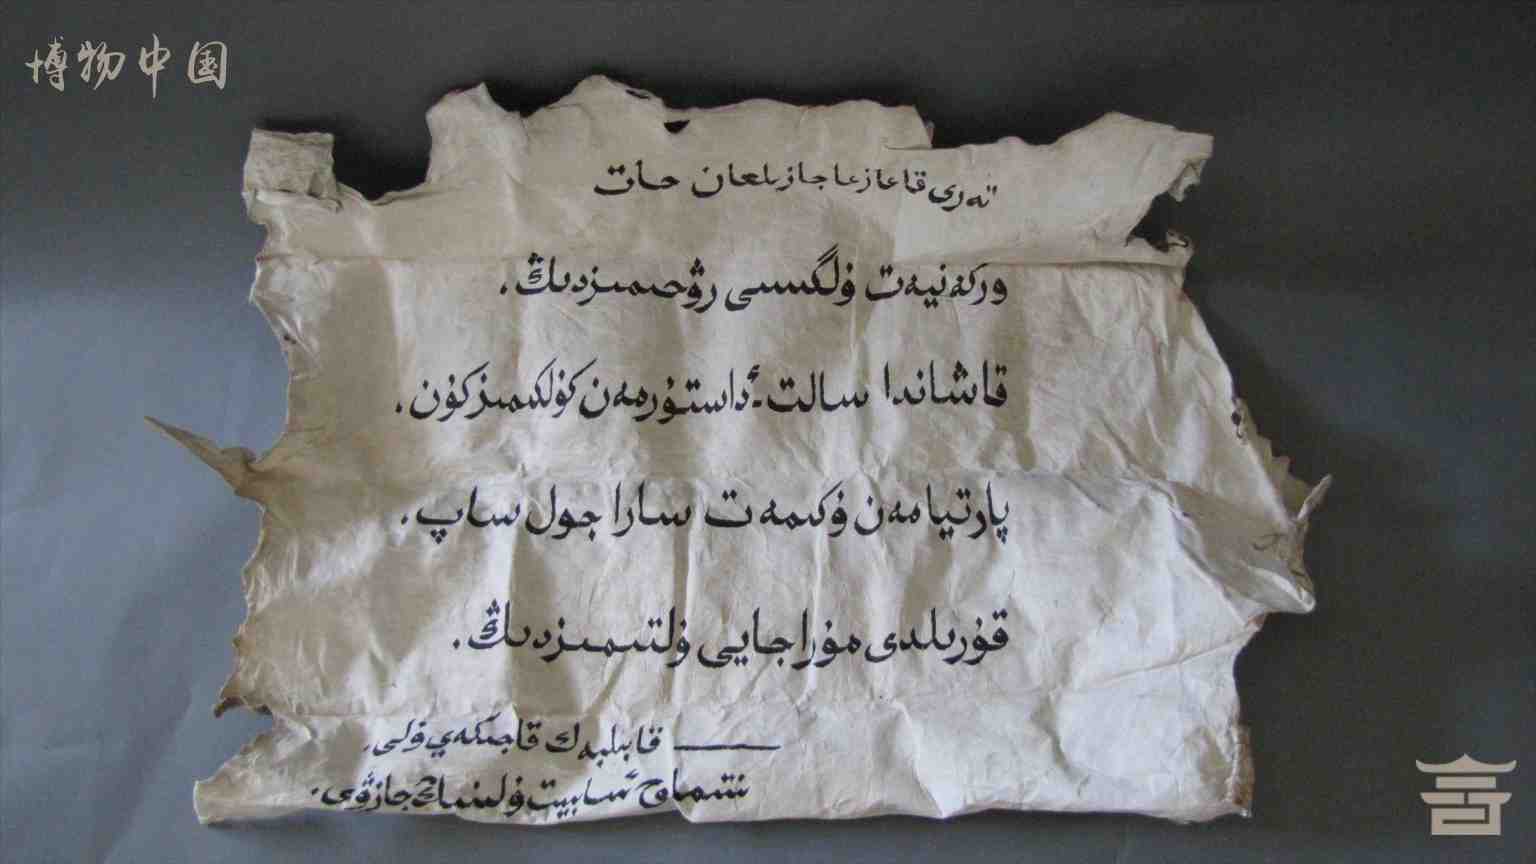 博物中国
تەرى قاعازعا جازىلعان حات
وركەنيەت ۇلگىسى رۋحىمىزدىڭ.
قاشاندا سالت-ٴداستۇرمەن كۇلكىمىز كۇن.
پارتيامەن ۇكىمەت سارا جول ساپ.
قۇرىلدى مۇراجايى ۇلتىمىزدىڭ.
—— قابىلبەك قاجىكەي ۇلى
ٴسابيت ۇلىنىڭ جازۋى.